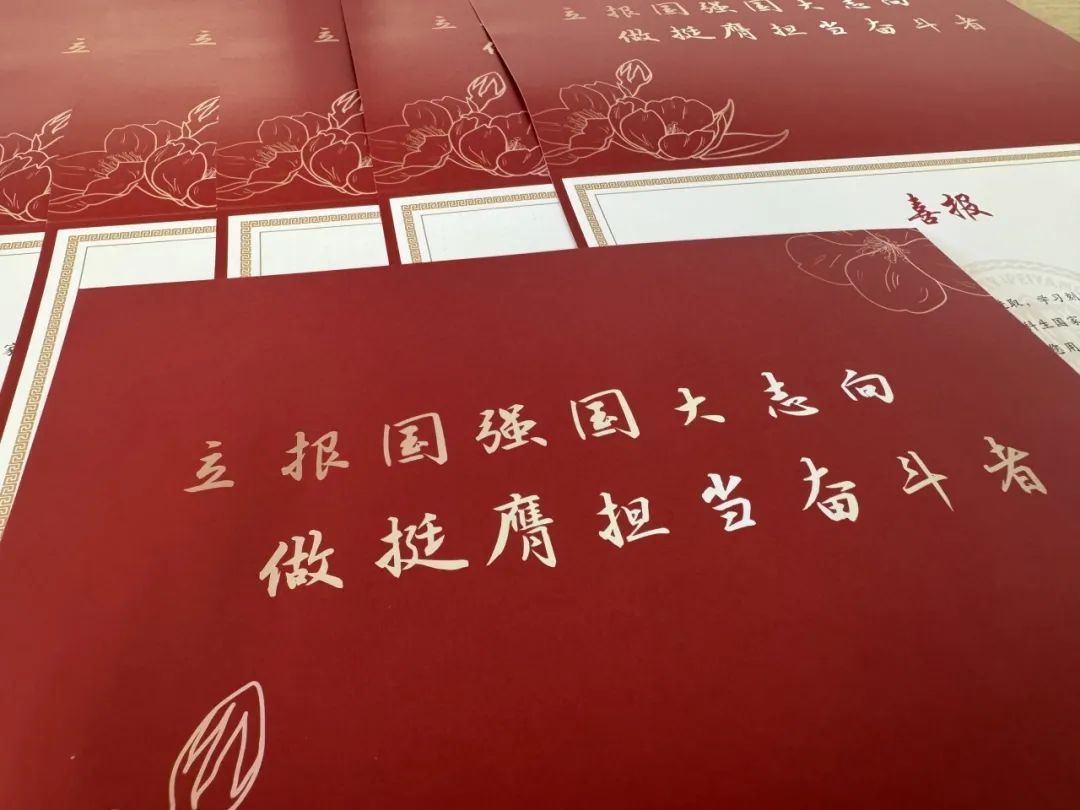 立
立
立
立
立报国强国大志向
做挺膺担当奋斗者
喜报
取，学习刻
科生国家
立报国强国大志向
做挺膺担当奋斗者